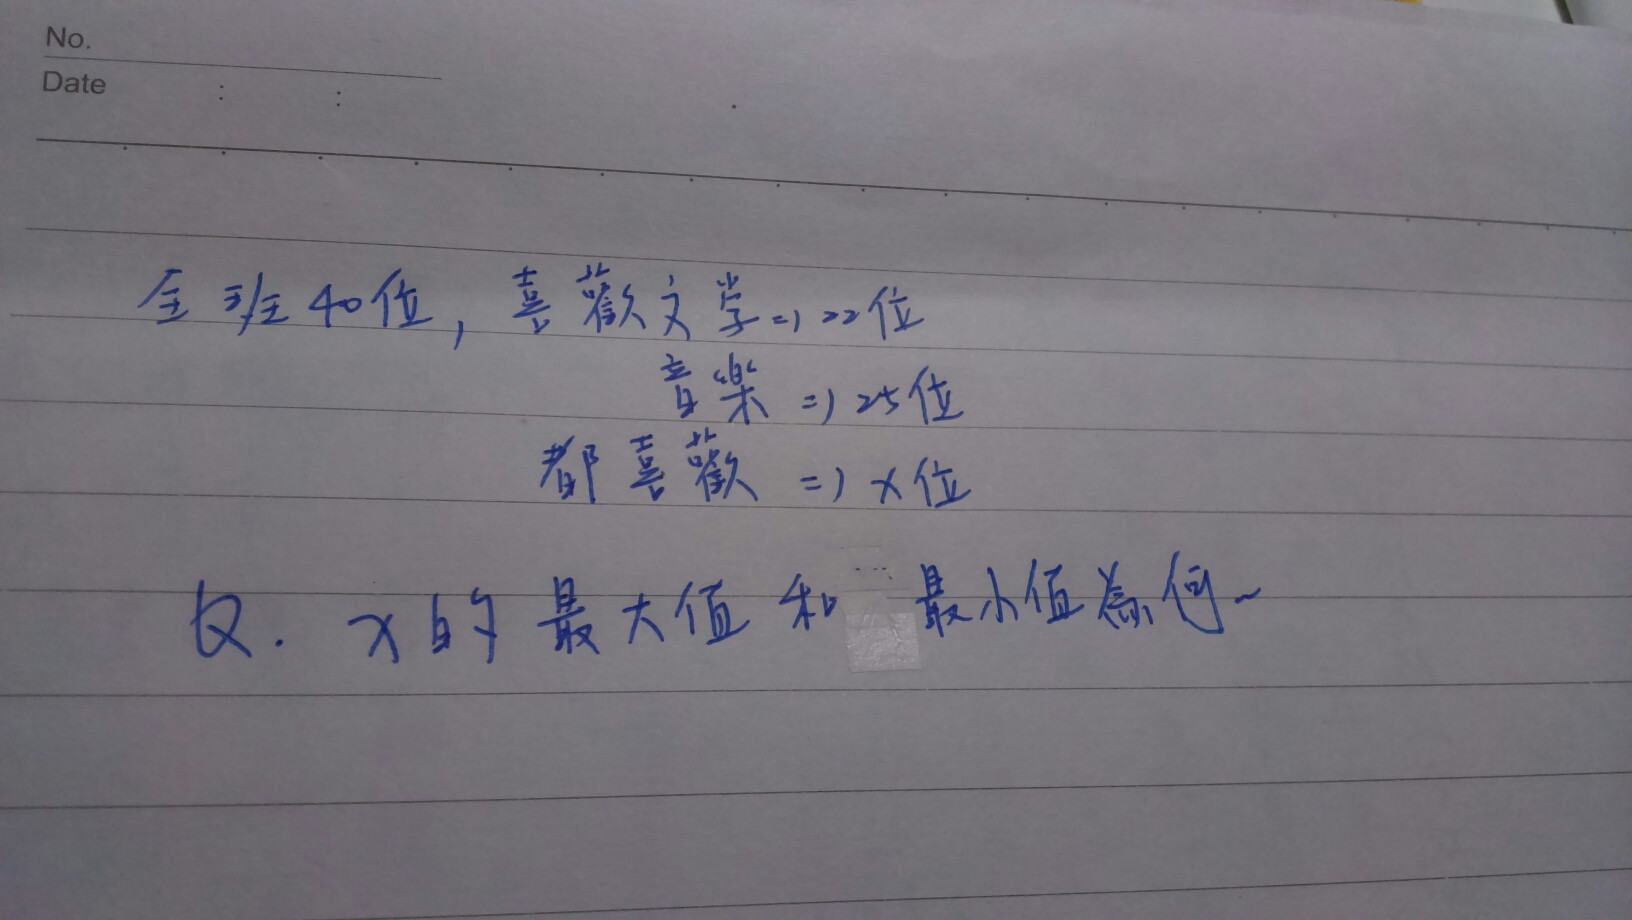 No.
Date : :
全班40位,喜歡文学=)22位
音樂=)25位
都喜歡=)x位
Q. x的最大值和最小值為何~